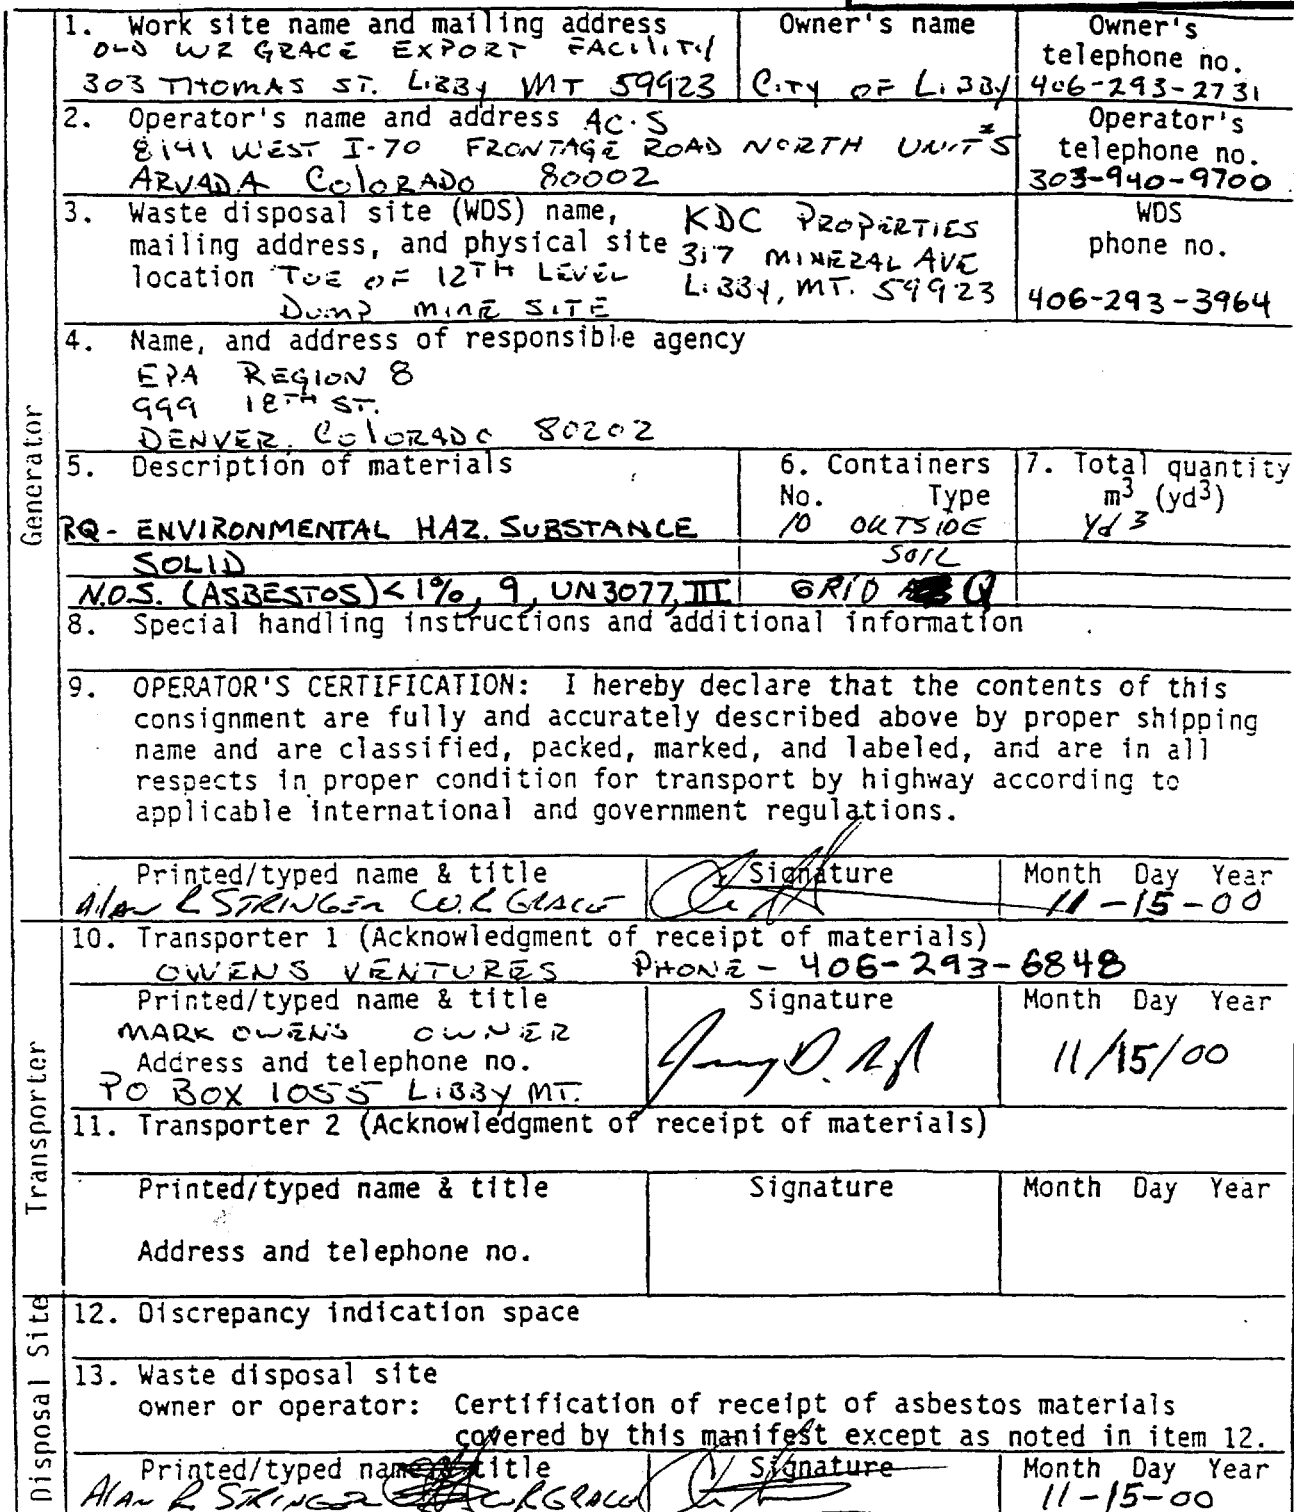 1. Work site name and mailing address
OLD WR GRACE EXPORT FACILITY
303 THOMAS ST. LIBBY MT 59923
Owner's name
CITY OF LIBBY
Owner's
telephone no.
406-293-2731
2. Operator's name and address AC·S
8141 WEST I-70 FRONTAGE ROAD NORTH UNIT #5
ARVADA COLORADO 80002
Operator's
telephone no.
303-940-9700
3. Waste disposal site (WDS) name,
mailing address, and physical site
location TOE OF 12TH LEVEL
DUMP MINE SITE
KDC PROPERTIES
317 MINERAL AVE
LIBBY, MT. 59923
WDS
phone no.
406-293-3964
4. Name, and address of responsible agency
EPA REGION 8
999 18TH ST.
DENVER, COLORADO 80202
Generator
5. Description of materials
RQ - ENVIRONMENTAL HAZ. SUBSTANCE
SOLID
N.O.S. (ASBESTOS) < 1%, 9, UN3077, III
6. Containers
No. Type
10 OUTSIDE
SOIL
GRID Q
7. Total quantity
m3 (yd3)
Yd 3
8. Special handling instructions and additional information
9. OPERATOR'S CERTIFICATION: I hereby declare that the contents of this
consignment are fully and accurately described above by proper shipping
name and are classified, packed, marked, and labeled, and are in all
respects in proper condition for transport by highway according to
applicable international and government regulations.
Printed/typed name & title
Alan R STRINGER W.R GRACE
Signature
Month Day Year
11-15-00
Transporter
10. Transporter 1 (Acknowledgment of receipt of materials)
OWENS VENTURES PHONE - 406-293-6848
Printed/typed name & title
MARK OWENS OWNER
Address and telephone no.
PO BOX 1055 LIBBY MT.
Signature
Month Day Year
11/15/00
11. Transporter 2 (Acknowledgment of receipt of materials)
Printed/typed name & title
Address and telephone no.
Signature
Month Day Year
Disposal Site
12. Discrepancy indication space
13. Waste disposal site
owner or operator: Certification of receipt of asbestos materials
covered by this manifest except as noted in item 12.
Printed/typed name & title
Alan R STRINGER W.R GRACE
Signature
Month Day Year
11-15-00